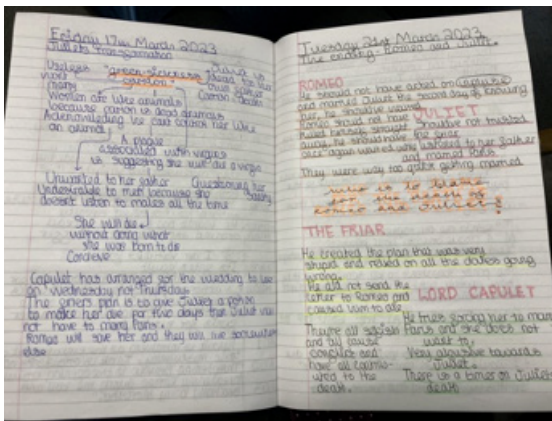 Friday 17th March 2023
Juliet's transformation
Useless
"green-sickness
carrion"
Juliet is
dead to her
Women are like animals
because carrion is dead animals
Acknowledging he can control her like
an animal
A plague
associated with virgins
is suggesting she will die a virgin
Unwanted to her father
Questioning her
Undesirable to men because she
doesn't listen to males all the time
She will die
without doing what
she was born to do
Conceive
Capulet has arranged for the wedding to be
on Wednesday not Thursday
The friar's plan is to give Juliet a potion
to make her die for two days that Juliet will
not have to marry Paris.
Romeo will save her and they will live somewhere
else
Tuesday 21st March 2023
The ending - Romeo and Juliet.
ROMEO
He should not have acted on
and married Juliet the second day of knowing
her, he should've waited
Romeo should not have
killed himself straight
away, he should've
JULIET
Should've not trusted
the friar
once again waited
listened to her father
and married Paris.
They were way too quick getting married
who is to blame
for the death of
romeo and Juliet?
THE FRIAR
He created the plan that was very
stupid and relied on all the
going
wrong.
He did not send the
letter to Romeo and
caused him to die
LORD CAPULET
He tries forcing her to marry
Paris and she does not
want to.
Very abusive towards
Juliet.
There is a timer on Juliet's
death
They're all selfish
and all cause
conflict and
have all
to the
death.